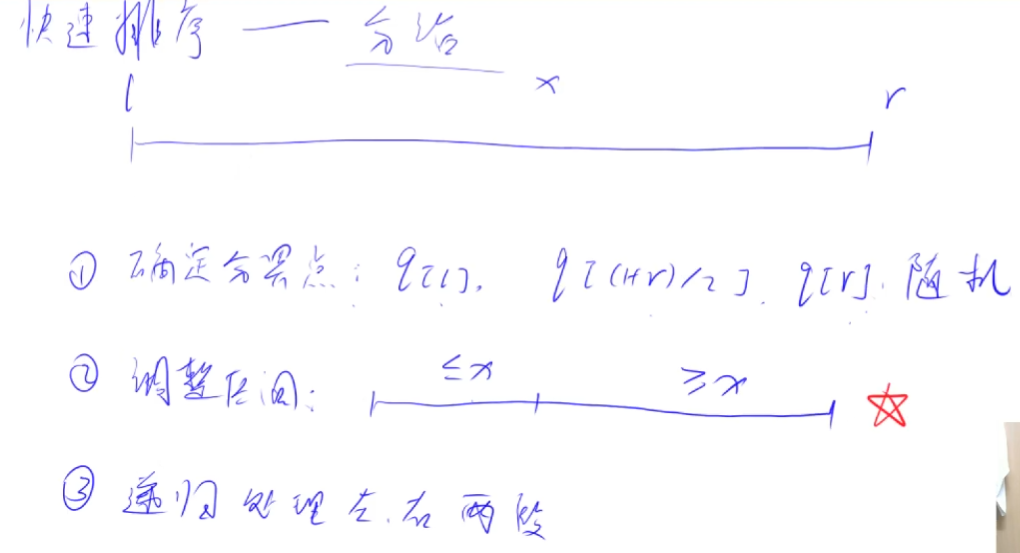 快速排序 —— 分治
l x r
① 确定分界点：q[l]， q[(l+r)/2]，q[r]，随机
② 调整区间： ≤x ≥x
③ 递归处理左、右两段